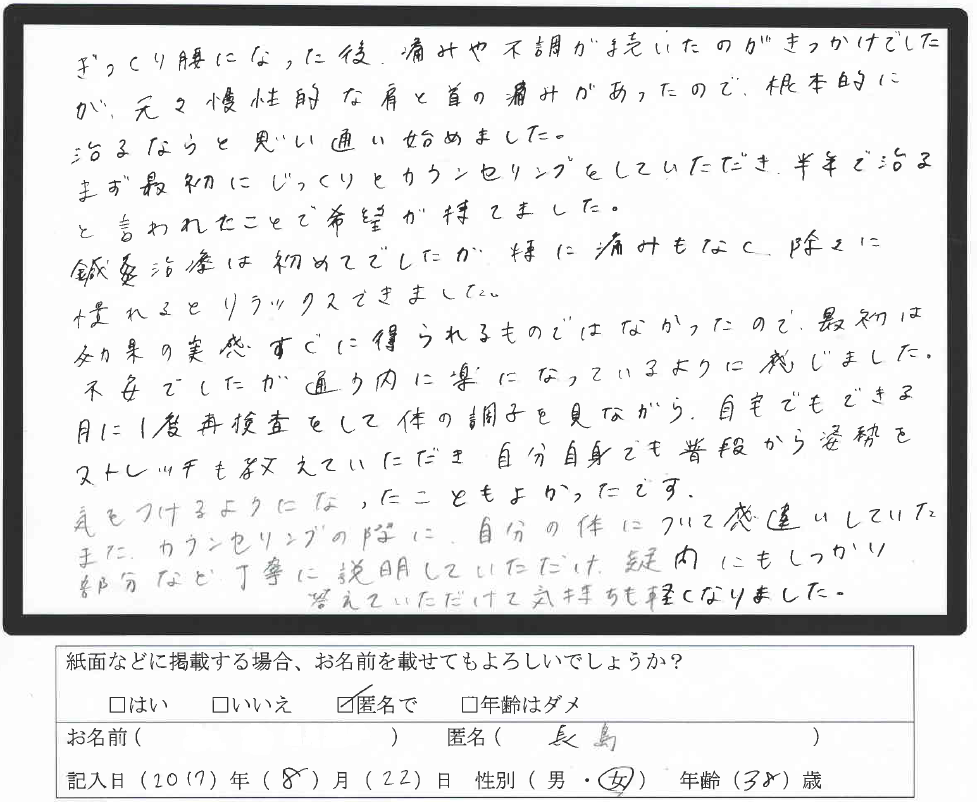 ぎっくり腰になった後、痛みや不調が続いたのがきっかけでした
が、元々慢性的な肩と首の痛みがあったので、根本的に
治るならと思い通い始めました。
まず最初にじっくりとカウンセリングをしていただき、半年で治る
と言われたことで希望が持てました。
鍼灸治療は初めてでしたが 特に痛みもなく 除々に
慣れるとリラックスできました。
効果の実感すぐに得られるものではなかったので、最初は
不安でしたが通う内に楽になっているように感じました。
月に1度再検査をして体の調子を見ながら、自宅でもできる
ストレッチも教えていただき 自分自身でも普段から姿勢を
気をつけるようになったこともよかったです。
また、カウンセリングの際に、自分の体について感違いしていた
部分など丁寧に説明していただけ、疑内にもしっかり
答えていただけて気持ちも軽くなりました。
紙面などに掲載する場合、お名前を載せてもよろしいでしょうか？
□はい □いいえ ☑匿名で □年齢はダメ
お名前（ ） 匿名（ 長島 ）
記入日（2017）年（8）月（22）日 性別（ 男 ・ 女 ） 年齢（38）歳